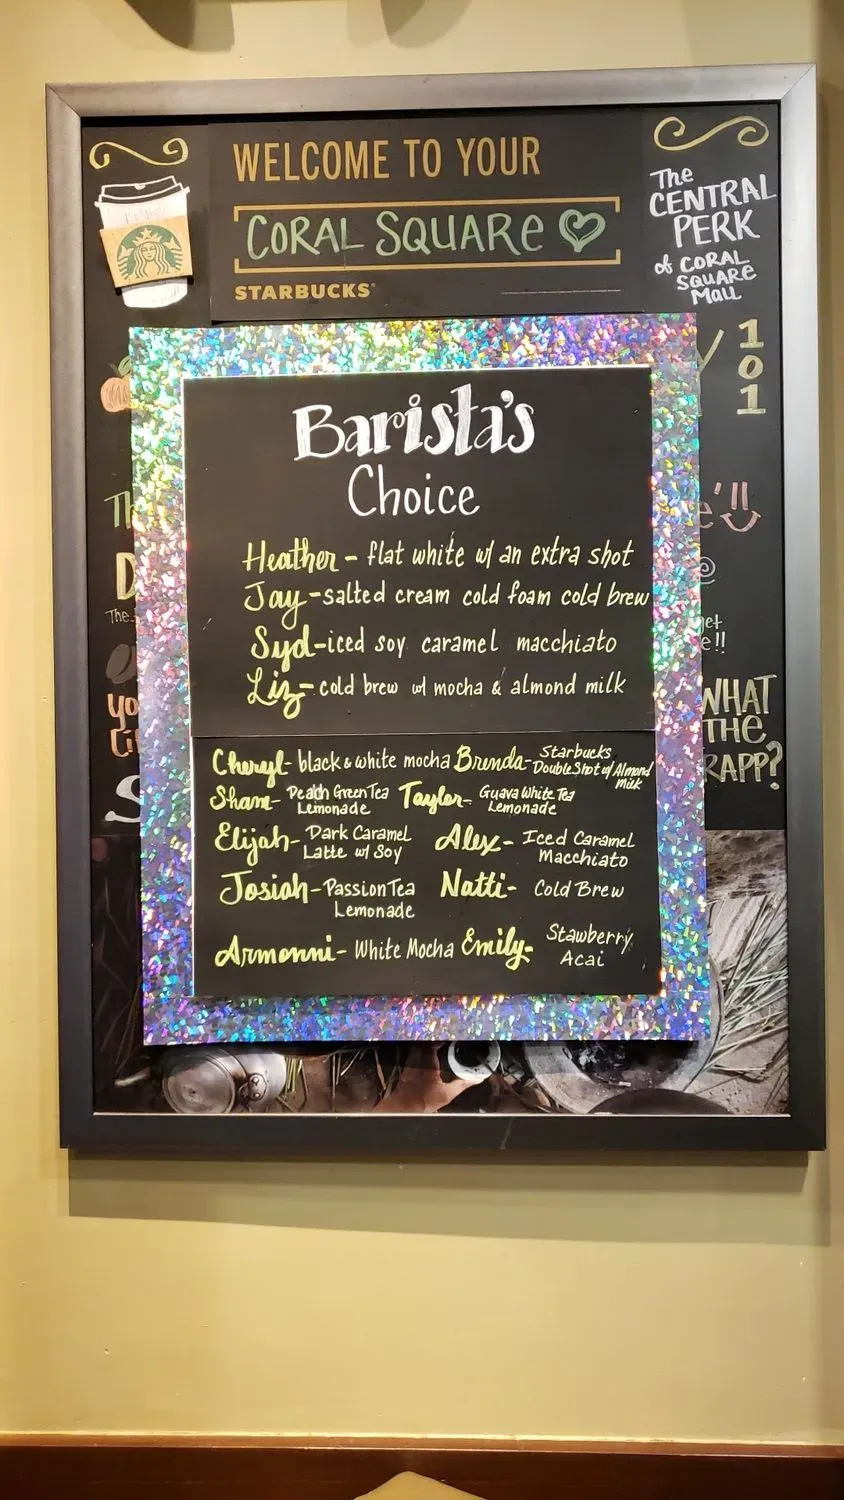 WELCOME TO YOUR
CORAL SQUARe
STARBUCKS
The
CENTRAL
PERK
of CORAL
SQUARE
Mall
1
0
1
Barista's
Choice
Heather - flat white w/ an extra shot
Jay - salted cream cold foam cold brew
Syd - iced soy caramel macchiato
Liz - cold brew w/ mocha & almond milk
Cheryl - black & white mocha
Brenda - Starbucks
DoubleShot w/ Almond
Milk
Shane - Peach Green Tea
Lemonade
Taylor - Guava White Tea
Lemonade
Elijah - Dark Caramel
Latte w/ Soy
Alex - Iced Caramel
Macchiato
Josiah - Passion Tea
Lemonade
Natti - Cold Brew
Armonni - White Mocha
Emily - Stawberry
Acai
WHAT
THE